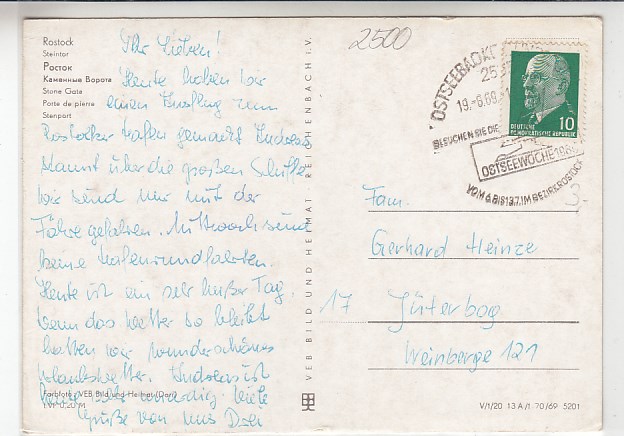 Rostock
Steintor
Росток
Каменные Ворота
Stone Gate
Porte de pierre
Stenport
Ihr Lieben!
Heute haben wir
einen Ausflug zum
Rostocker Hafen gemacht. Andreas
staunt über die großen Schiffe
wir sind nur mit der
Fähre gefahren. Mittwoch sind
keine Hafenrundfahrten.
Heute ist ein sehr heißer Tag.
wenn das Wetter so bleibt
hatten wir wunderschönes
Urlaubswetter. Andreas ist
Viele
Grüße von uns Drei
Farbfoto: VEB Bild und Heimat (Dörr)
EVP 0,20 M
VEB BILD UND HEIMAT REICHENBACH i. V.
2500
OSTSEEBAD
25
19.-6.69.
BESUCHEN SIE DIE
OSTSEEWOCHE 1969
VOM 6. BIS 13.7. IM BEZIRK ROSTOCK
DEUTSCHE
DEMOKRATISCHE REPUBLIK
10
3.
Fam.
Gerhard Heinze
17 Jüterbog
Weinberge 121
V/1/20 13 A/1 70/69 5201